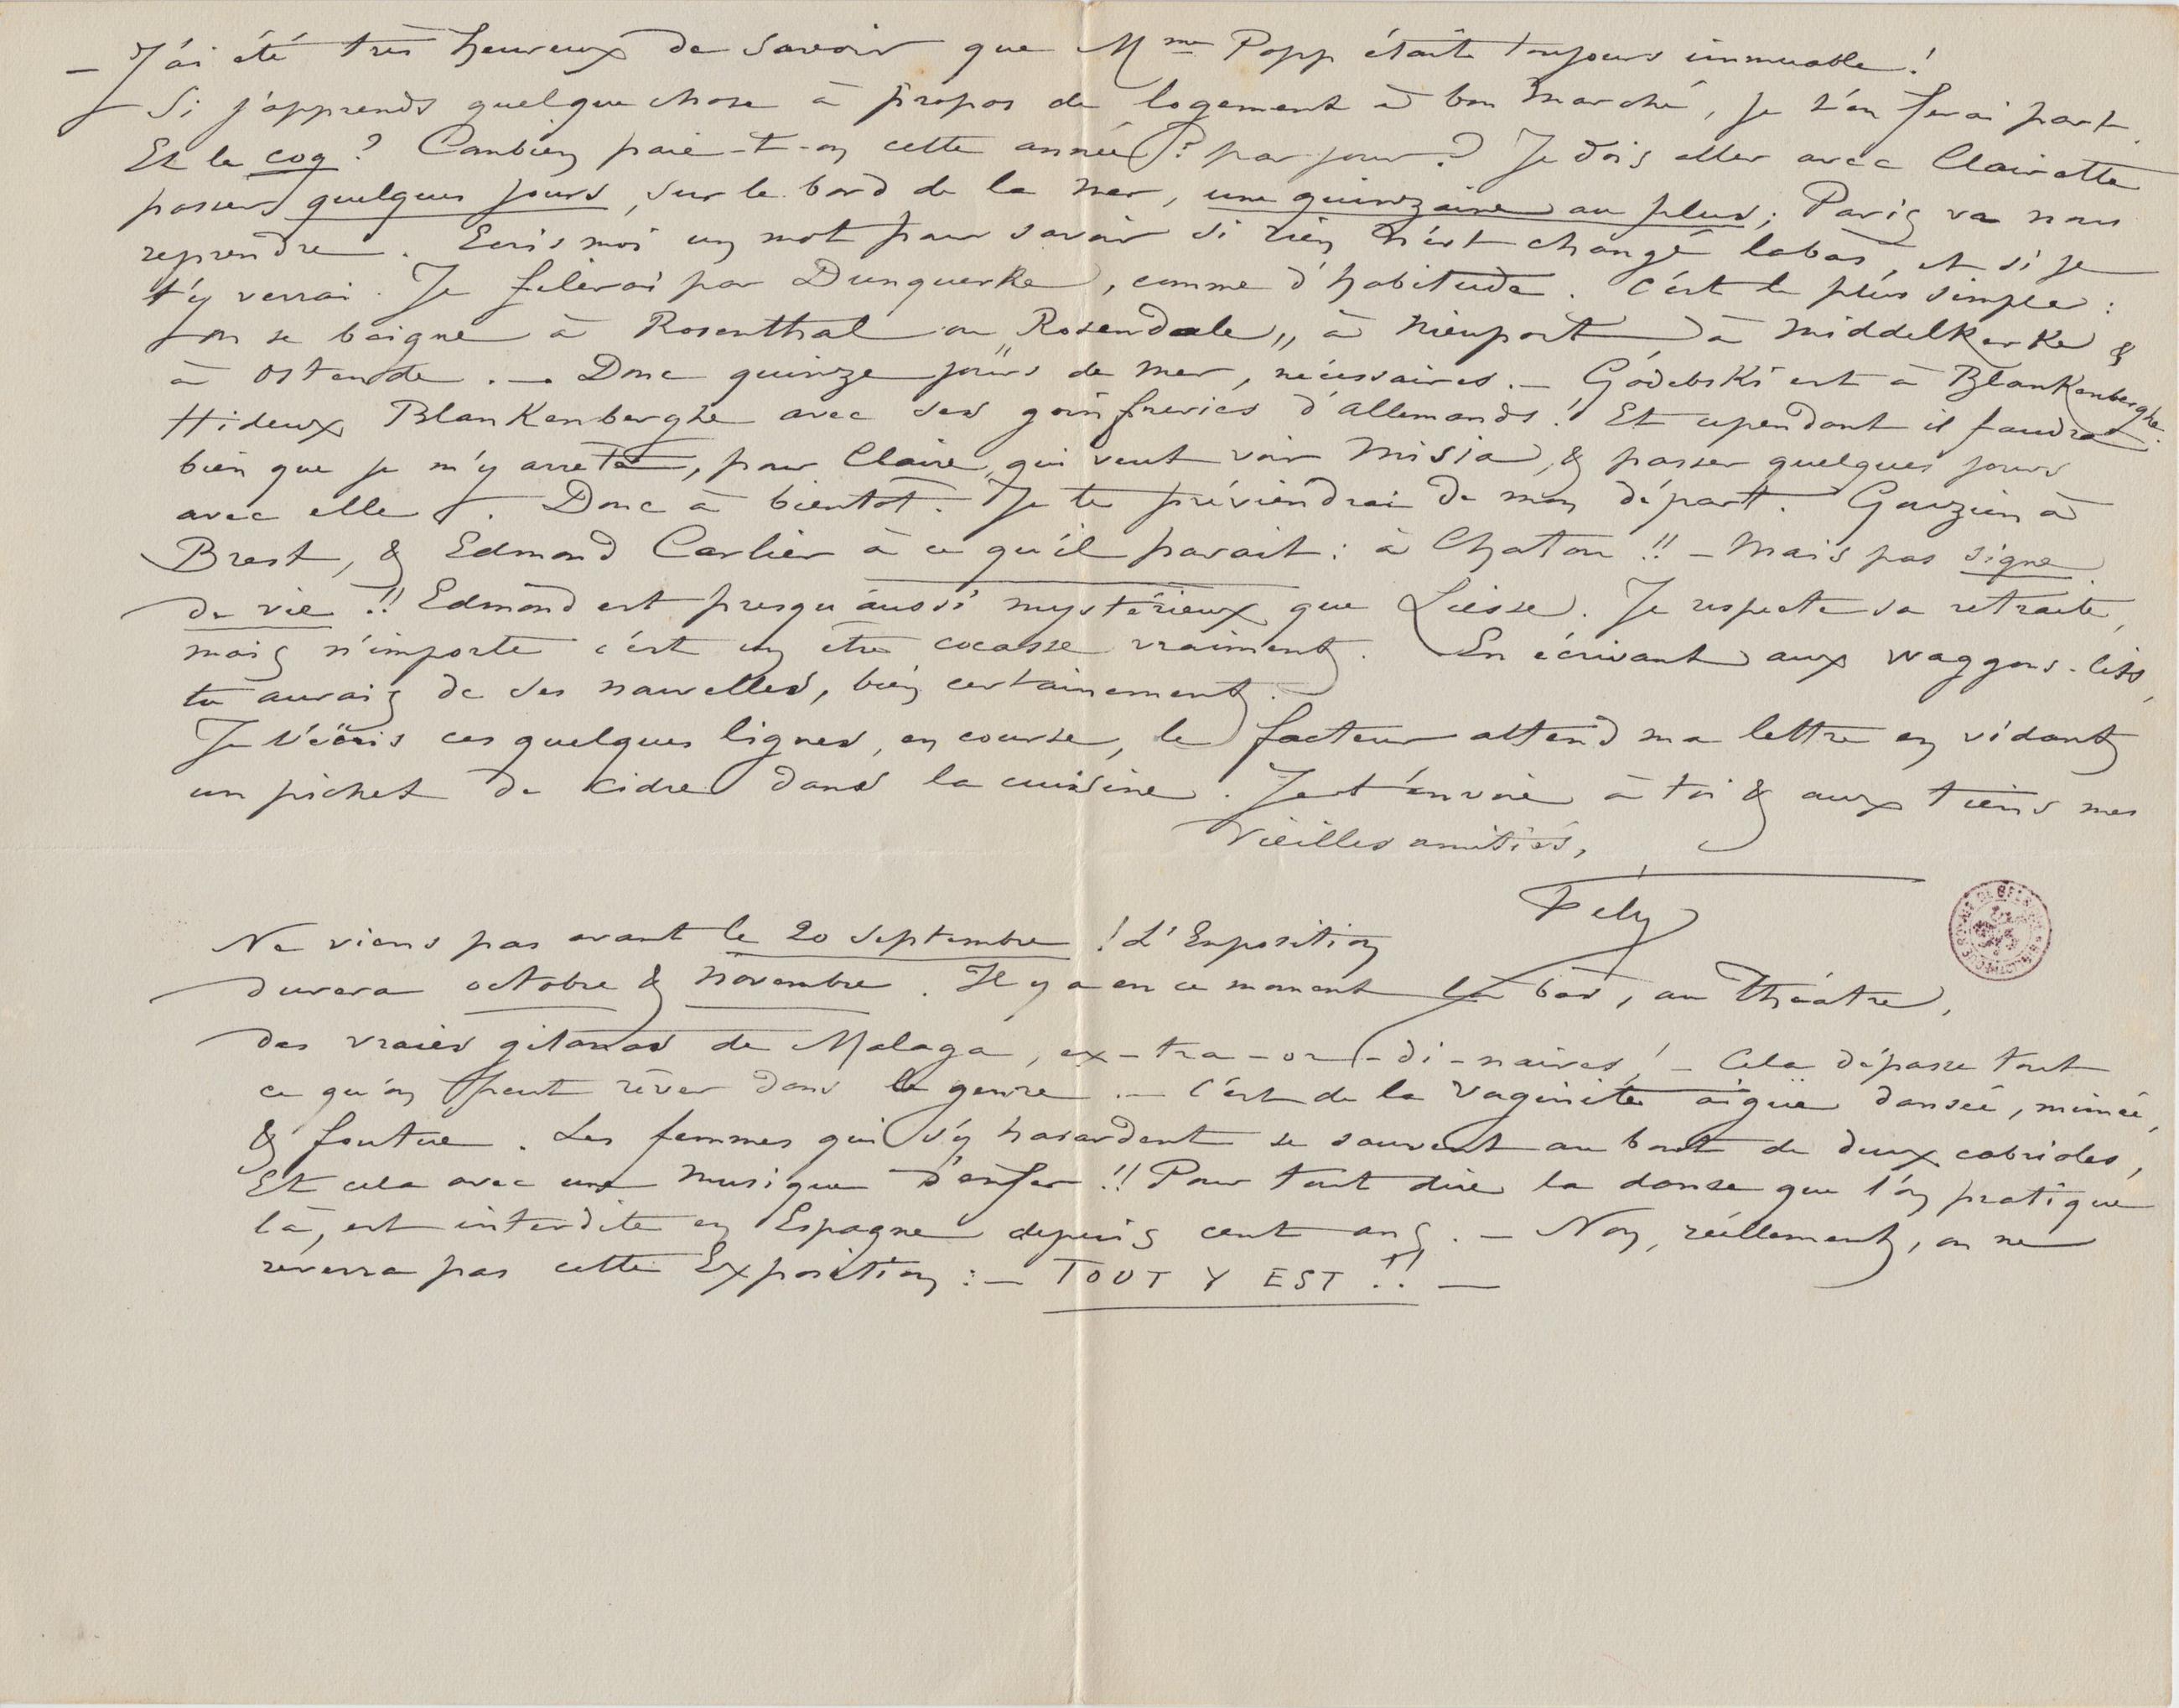 — J'ai été très heureux de savoir que Mme Popp était toujours immuable!
Si j'apprends quelque chose à propos de logement à bon marché, je t'en ferai part.
Et le coq? Combien paie-t-on cette année? par jour? Je dois aller avec Clairette
passer quelques jours, sur le bord de la mer, une quinzaine au plus; Paris va nous
reprendre. Ecris moi un mot pour savoir si rien n'est changé labas, et si je
t'y verrai. Je filerai par Dunquerke, comme d'habitude. C'est le plus simple:
on se baigne à Rosenthal ou „Rosendale„ à Nieuport à Middelkerke &
à Ostende. — Donc quinze jours de mer, nécessaires. — Godebski est à Blankenberghe.
Hideux Blankenberghe avec ses goinfreries d'allemands! Et cependant il faudra
bien que je m'y arrête, pour Claire, qui veut voir Misia, & passer quelques jours
avec elle. Donc à bientôt. Je te préviendrai de mon départ. Gouzien à
Brest, & Edmond Carlier à ce qu'il parait: à Chatou!! — Mais pas signe
de vie!! Edmond est presqu'aussi mystérieux que Liesse. Je respecte sa retraite,
mais n'importe c'est un être cocasse vraiment. En écrivant aux waggons-lits,
tu aurais de ses nouvelles, bien certainement.
Je t'écris ces quelques lignes, en course, le facteur attend ma lettre en vidant
un pichet de cidre dans la cuisine. Je t'envoie à toi & aux tiens mes
vieilles amitiés,
Fély
Ne viens pas avant le 20 septembre! L'Exposition
durera octobre & novembre. Il y a en ce moment là bas, au Théâtre,
des vraies gitanas de Malaga, ex-tra-or-di-naires! — Cela dépasse tout
ce qu'on peut rêver dans le genre. — C'est de la vaginite aigüe dansée, mimée,
& foutue. Les femmes qui s'y hasardent se sauvent au bout de deux cabrioles,
Et cela avec une musique d'enfer!! Pour tout dire la danse que l'on pratique
là, est interdite en Espagne depuis cent ans. — Non, réellement, on ne
reverra pas cette Exposition: — TOUT Y EST!! —